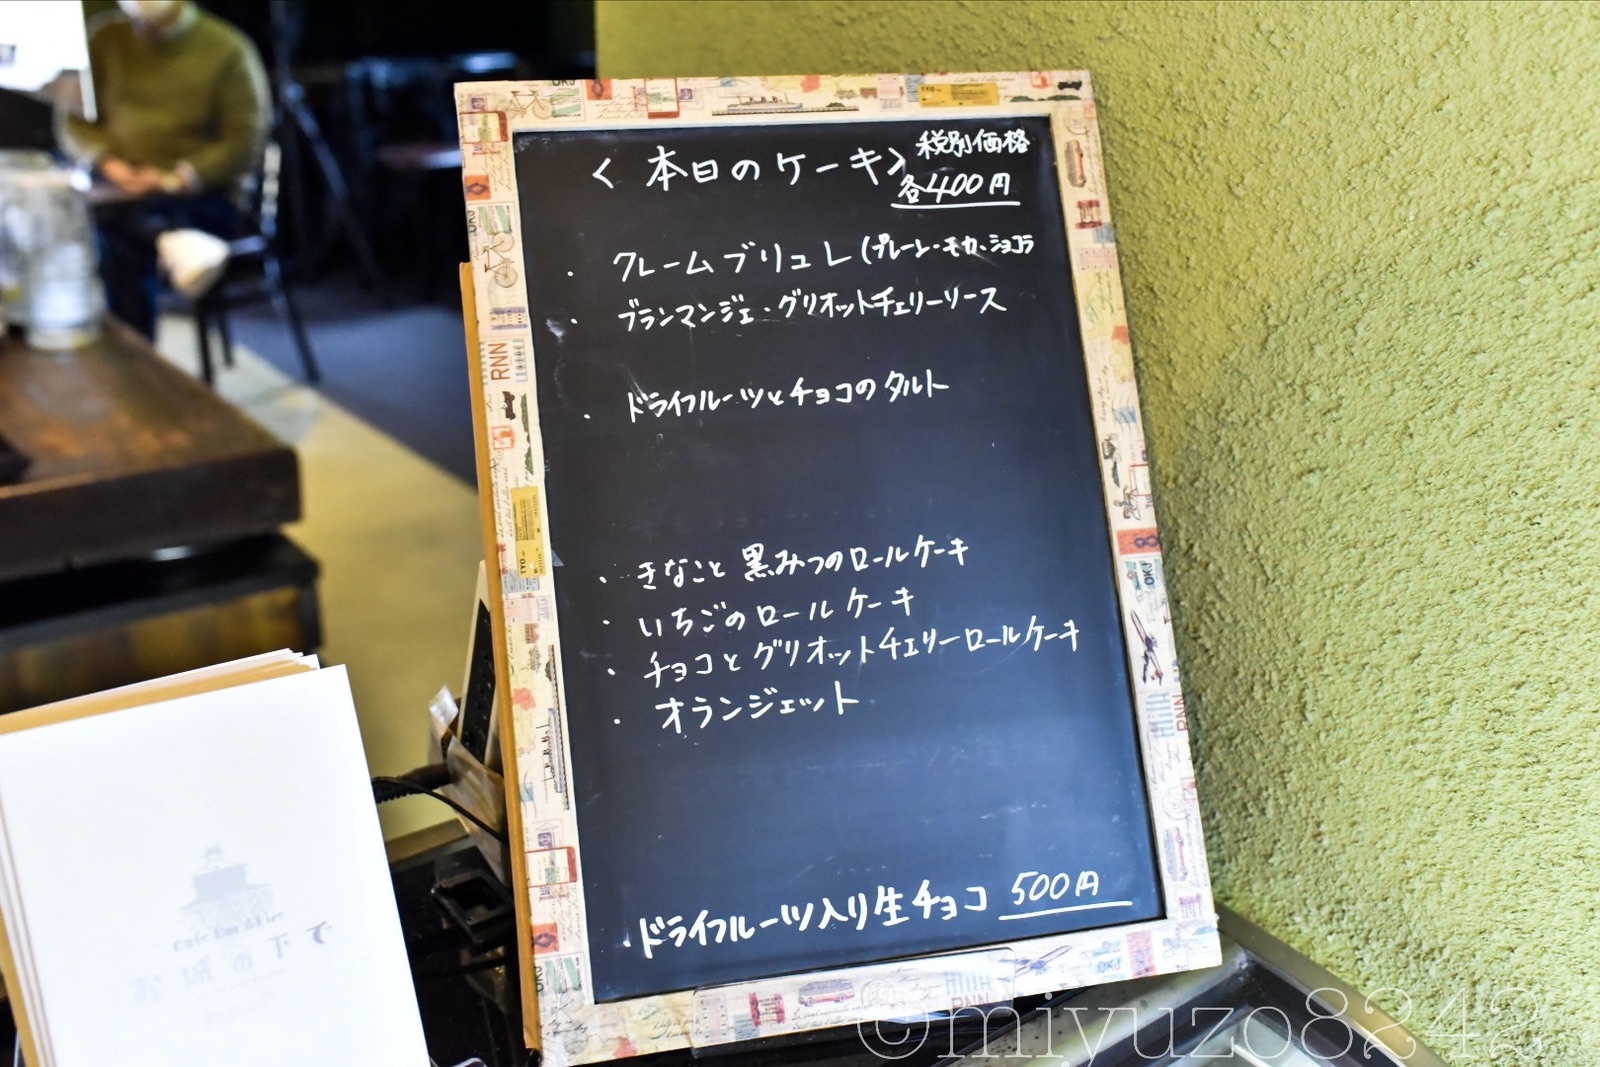 <本日のケーキ>
税別価格
各400円
・クレームブリュレ(プレーン・モカ・ショコラ
・ブランマンジェ・グリオットチェリーソース
・ドライフルーツとチョコのタルト
・きなこと黒みつのロールケーキ
・いちごのロールケーキ
・チョコとグリオットチェリーロールケーキ
・オランジェット
・ドライフルーツ入り生チョコ 500円
Cafe Bar & Live
お城の下で
RNN
OKJ
TYO
©miyuzo8242